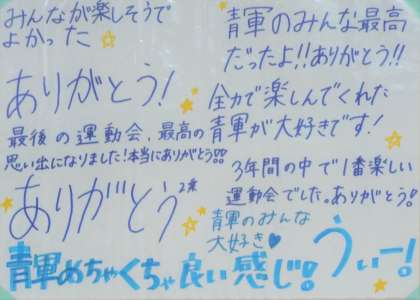 みんなが楽しそうで
よかった
ありがとう!
最後の運動会、最高の
思い出になりました!本当にありがとう!!
ありがとう
青軍のみんな最高
だったよ!!ありがとう!!
全力で楽しんでくれた
青軍が大好きです!
3年間の中で1番楽しい
運動会でした。ありがとう!
青軍のみんな
大好き♥
青軍めちゃくちゃ良い感じ!
うぃー!